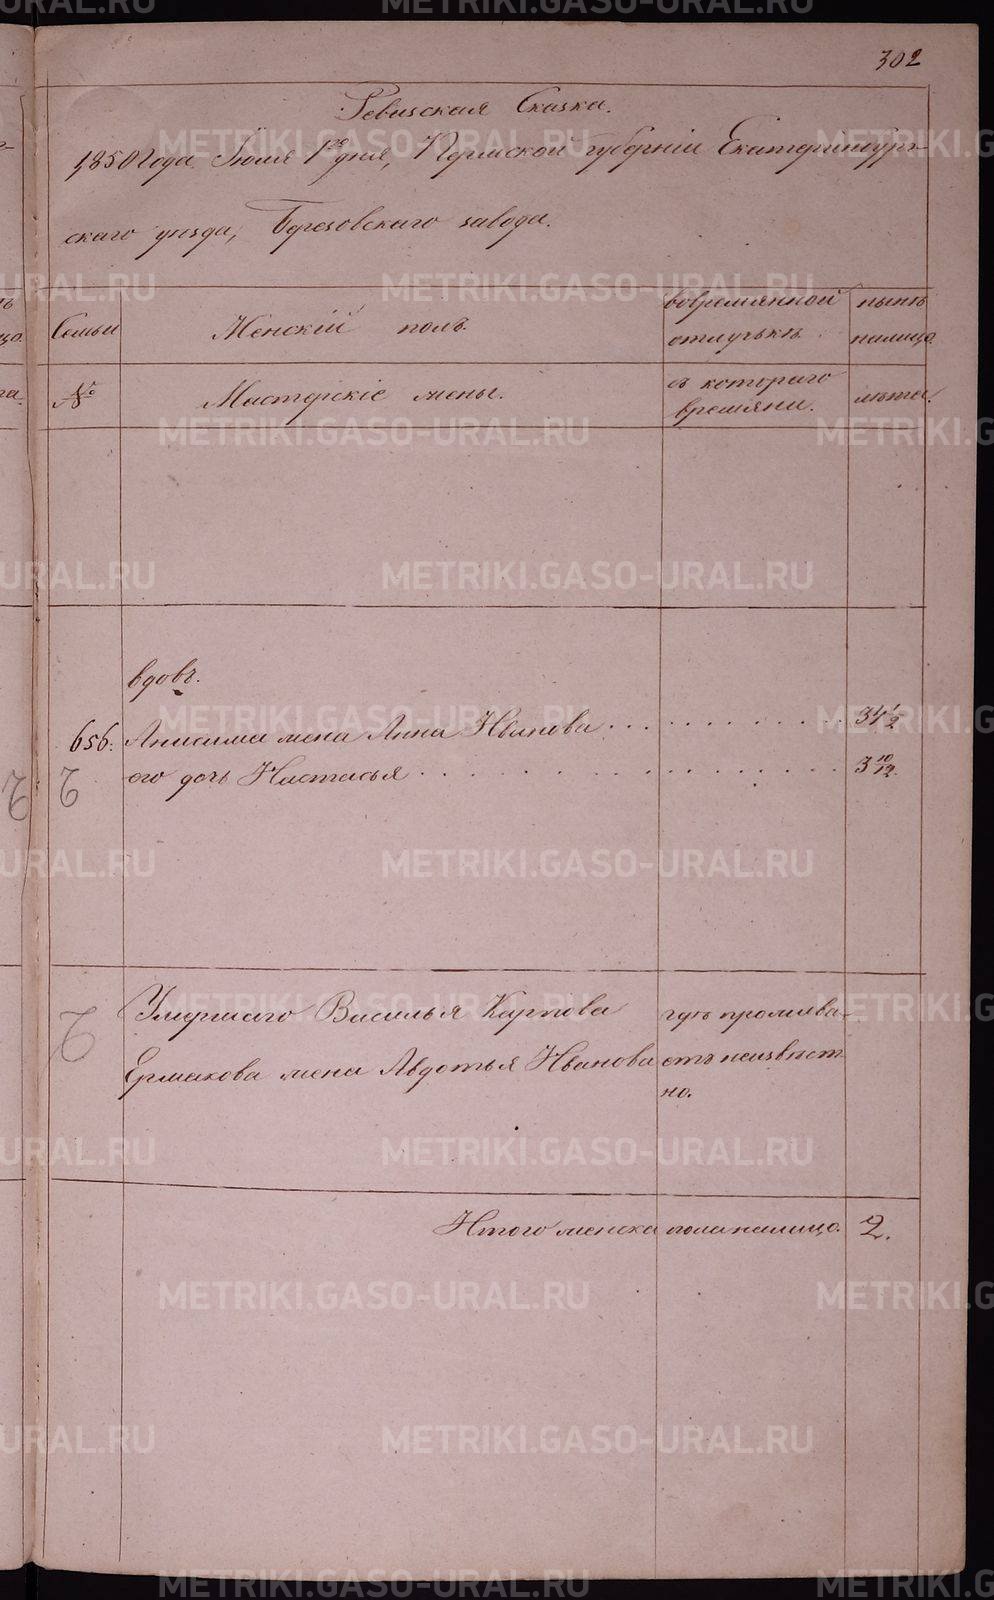 302
Ревизская Сказка.
1850 года Іюля 1го дня, Пермской губерніи Екатеринбург-
скаго уѣзда, Березовскаго завода.
Семьи
Женскій полъ.
вовремянной
отлучькѣ.
нынѣ
налицо.
№
Мастерскіе жены.
съ котораго
времяни.
лѣта.
вдовъ.
656. Анисима жена Анна Иванова 34 1/2
его дочь Настасья 3 10/12.
Умершаго Василья Карпова
Ермакова жена Авдотья Иванова
гдѣ прожива-
етъ неизвѣст
но.
Итого женска пола налицо. 2.
METRIKI.GASO-URAL.RU